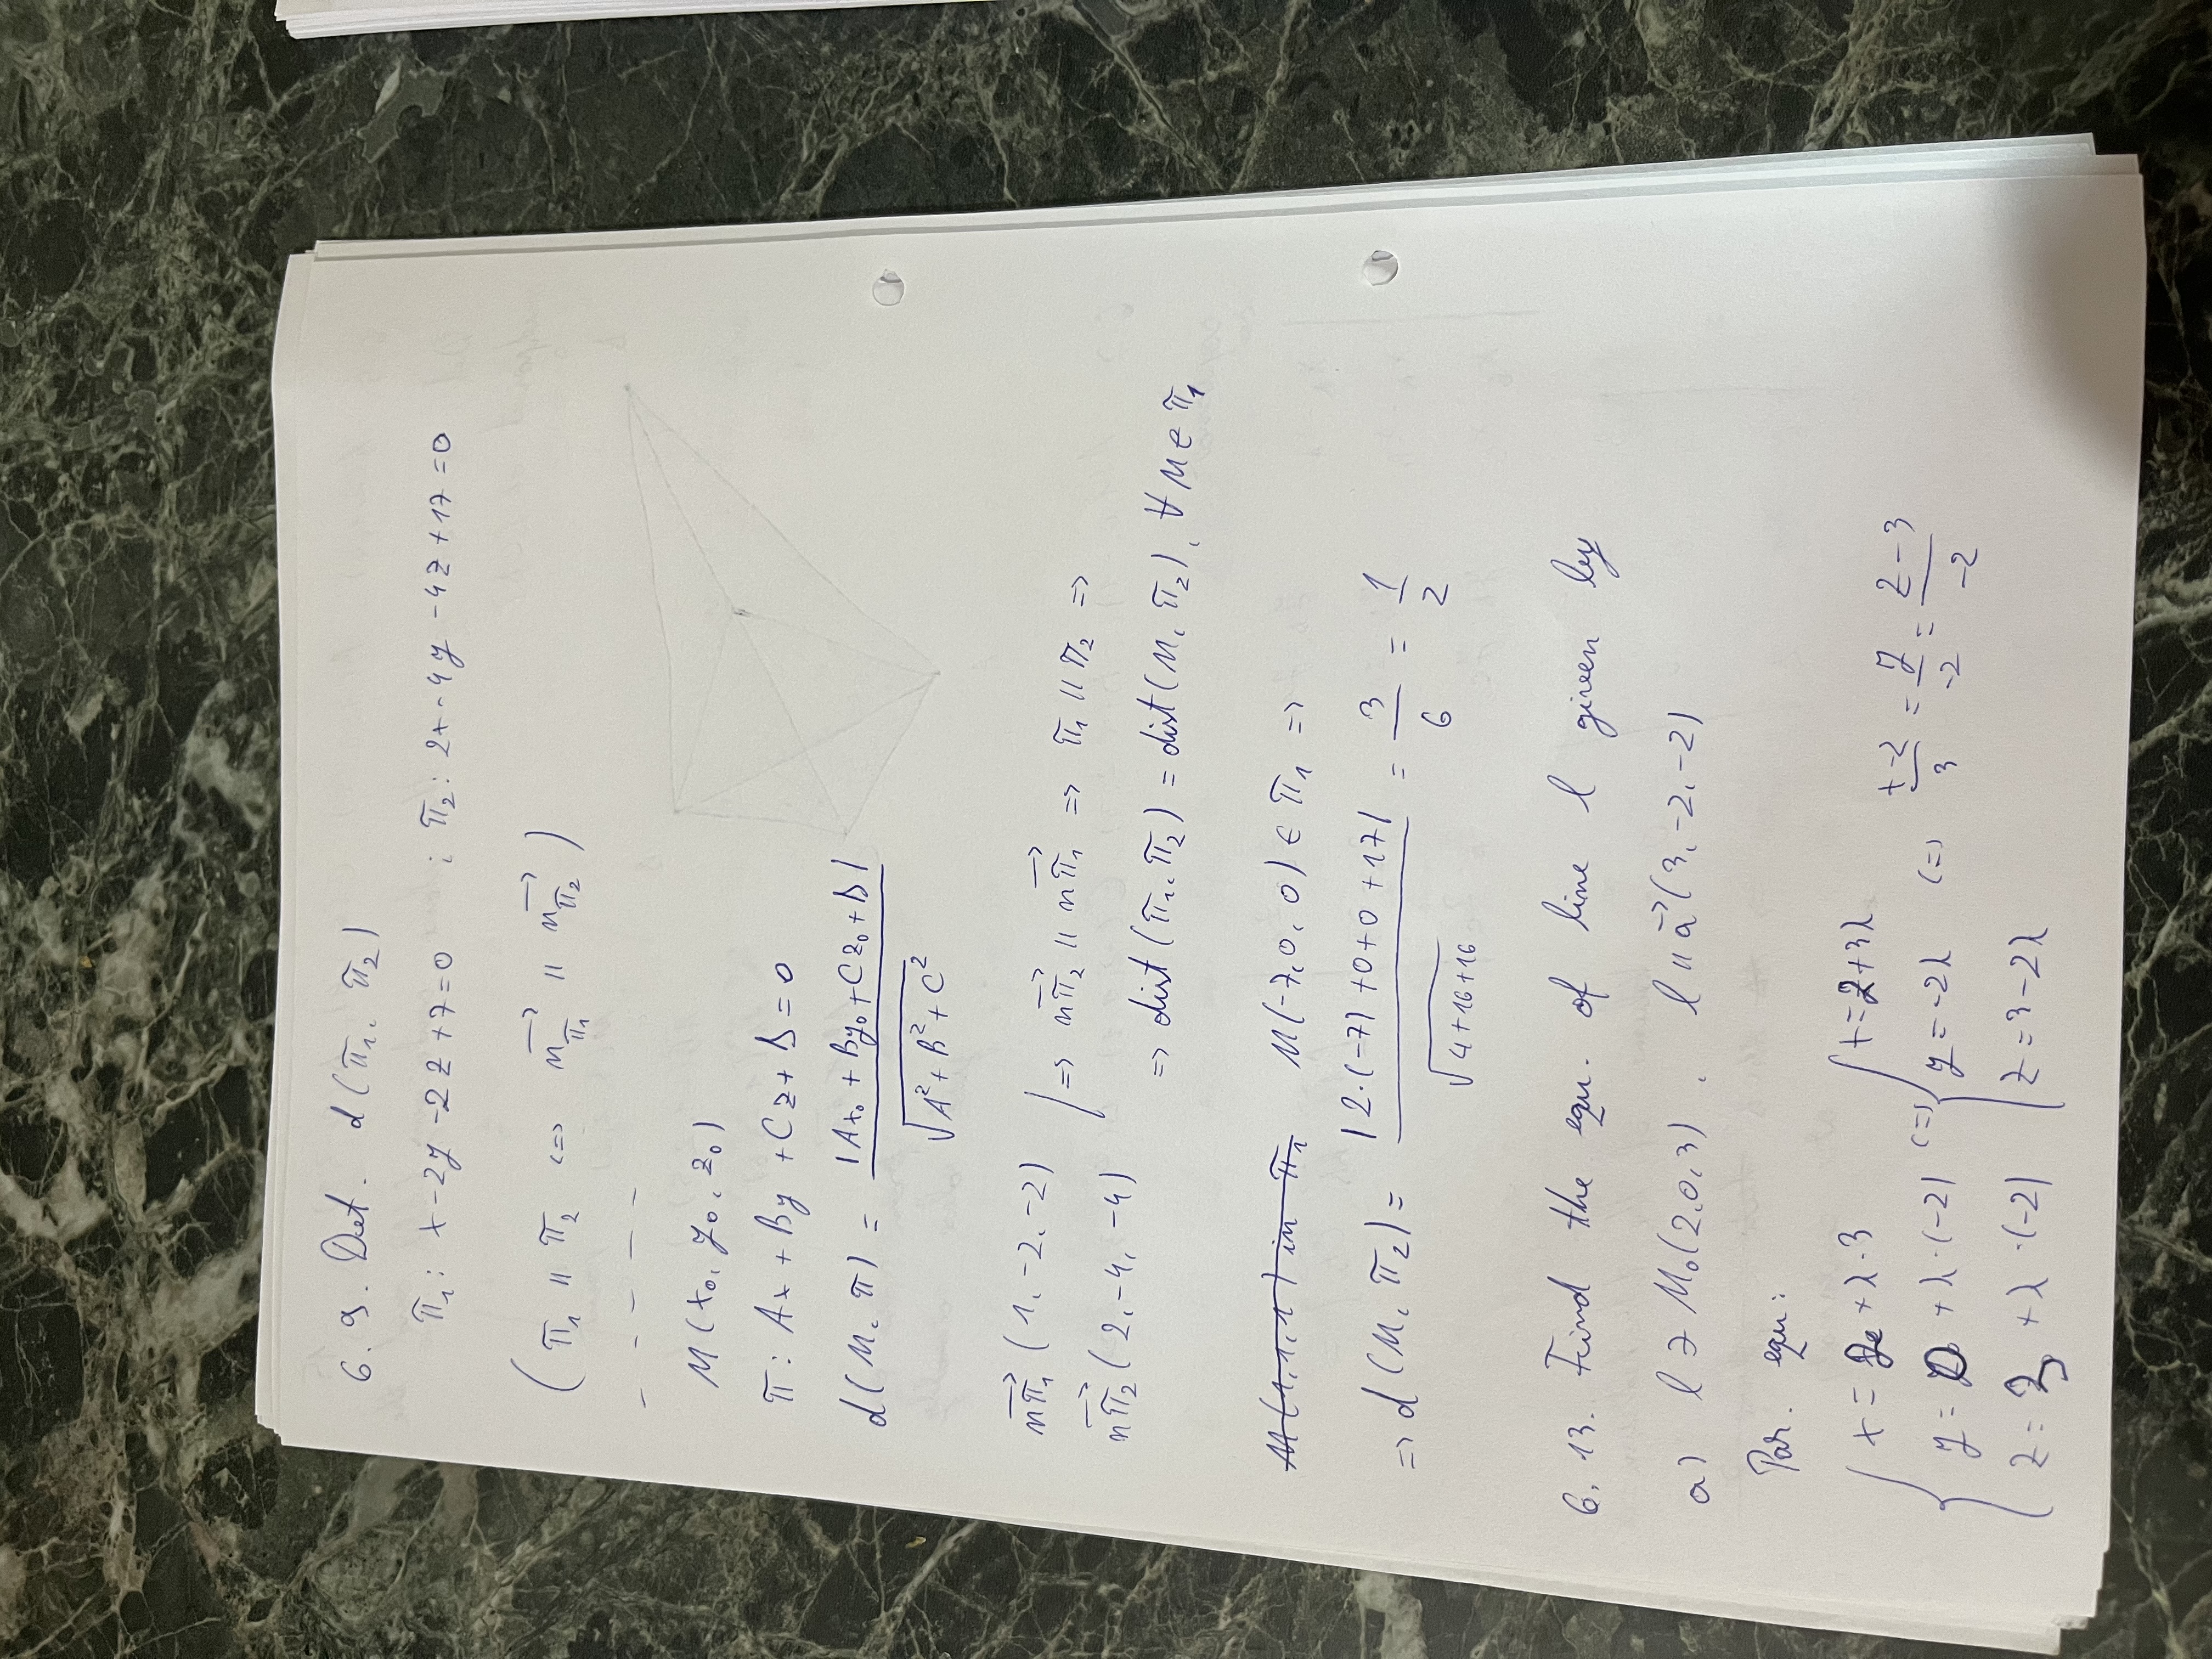 6.9. Det. d(π₁, π₂)
π₁: x-2y-2z+7=0 ; π₂: 2x-4y-4z+17=0
(π₁ ∥ π₂ <=> n⃗_π₁ ∥ n⃗_π₂)
- - - - -
M(x₀, y₀, z₀)
π: Ax + By + Cz + D = 0
d(M, π) = |Ax₀ + By₀ + Cz₀ + D| / √(A² + B² + C²)
n⃗_π₁ (1, -2, -2)
n⃗_π₂ (2, -4, -4) | => n⃗_π₂ ∥ n⃗_π₁ => π₁ ∥ π₂ =>
=> dist(π₁, π₂) = dist(M, π₂), ∀ M ∈ π₁
M(1,1,1) in π₁ M(-7, 0, 0) ∈ π₁ =>
=> d(M, π₂) = |2·(-7) + 0 + 0 + 17| / √(4+16+16) = 3/6 = 1/2
6.13. Find the equ. of line l given by
a) l ∋ M₀(2,0,3), l ∥ a⃗(3, -2, -2)
Par. equ:
{ x = 2 + λ·3 { x = 2 + 3λ
{ y = 0 + λ·(-2) <=> { y = -2λ <=> (x-2)/3 = y/-2 = (z-3)/-2
{ z = 3 + λ·(-2) { z = 3 - 2λ